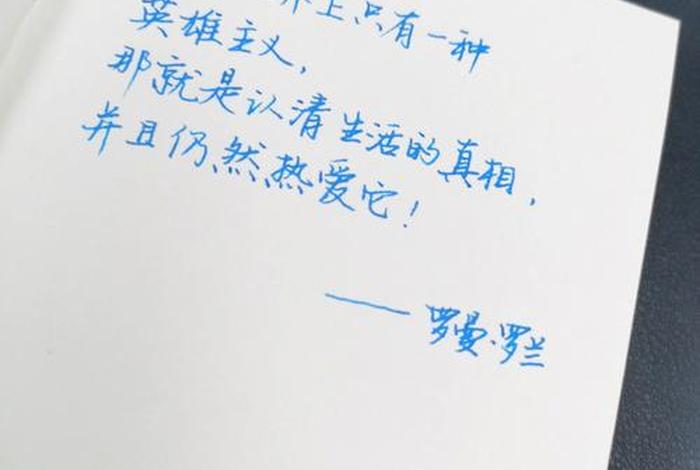 界上只有一种
英雄主义,
那就是认清生活的真相,
并且仍然热爱它!
——罗曼·罗兰